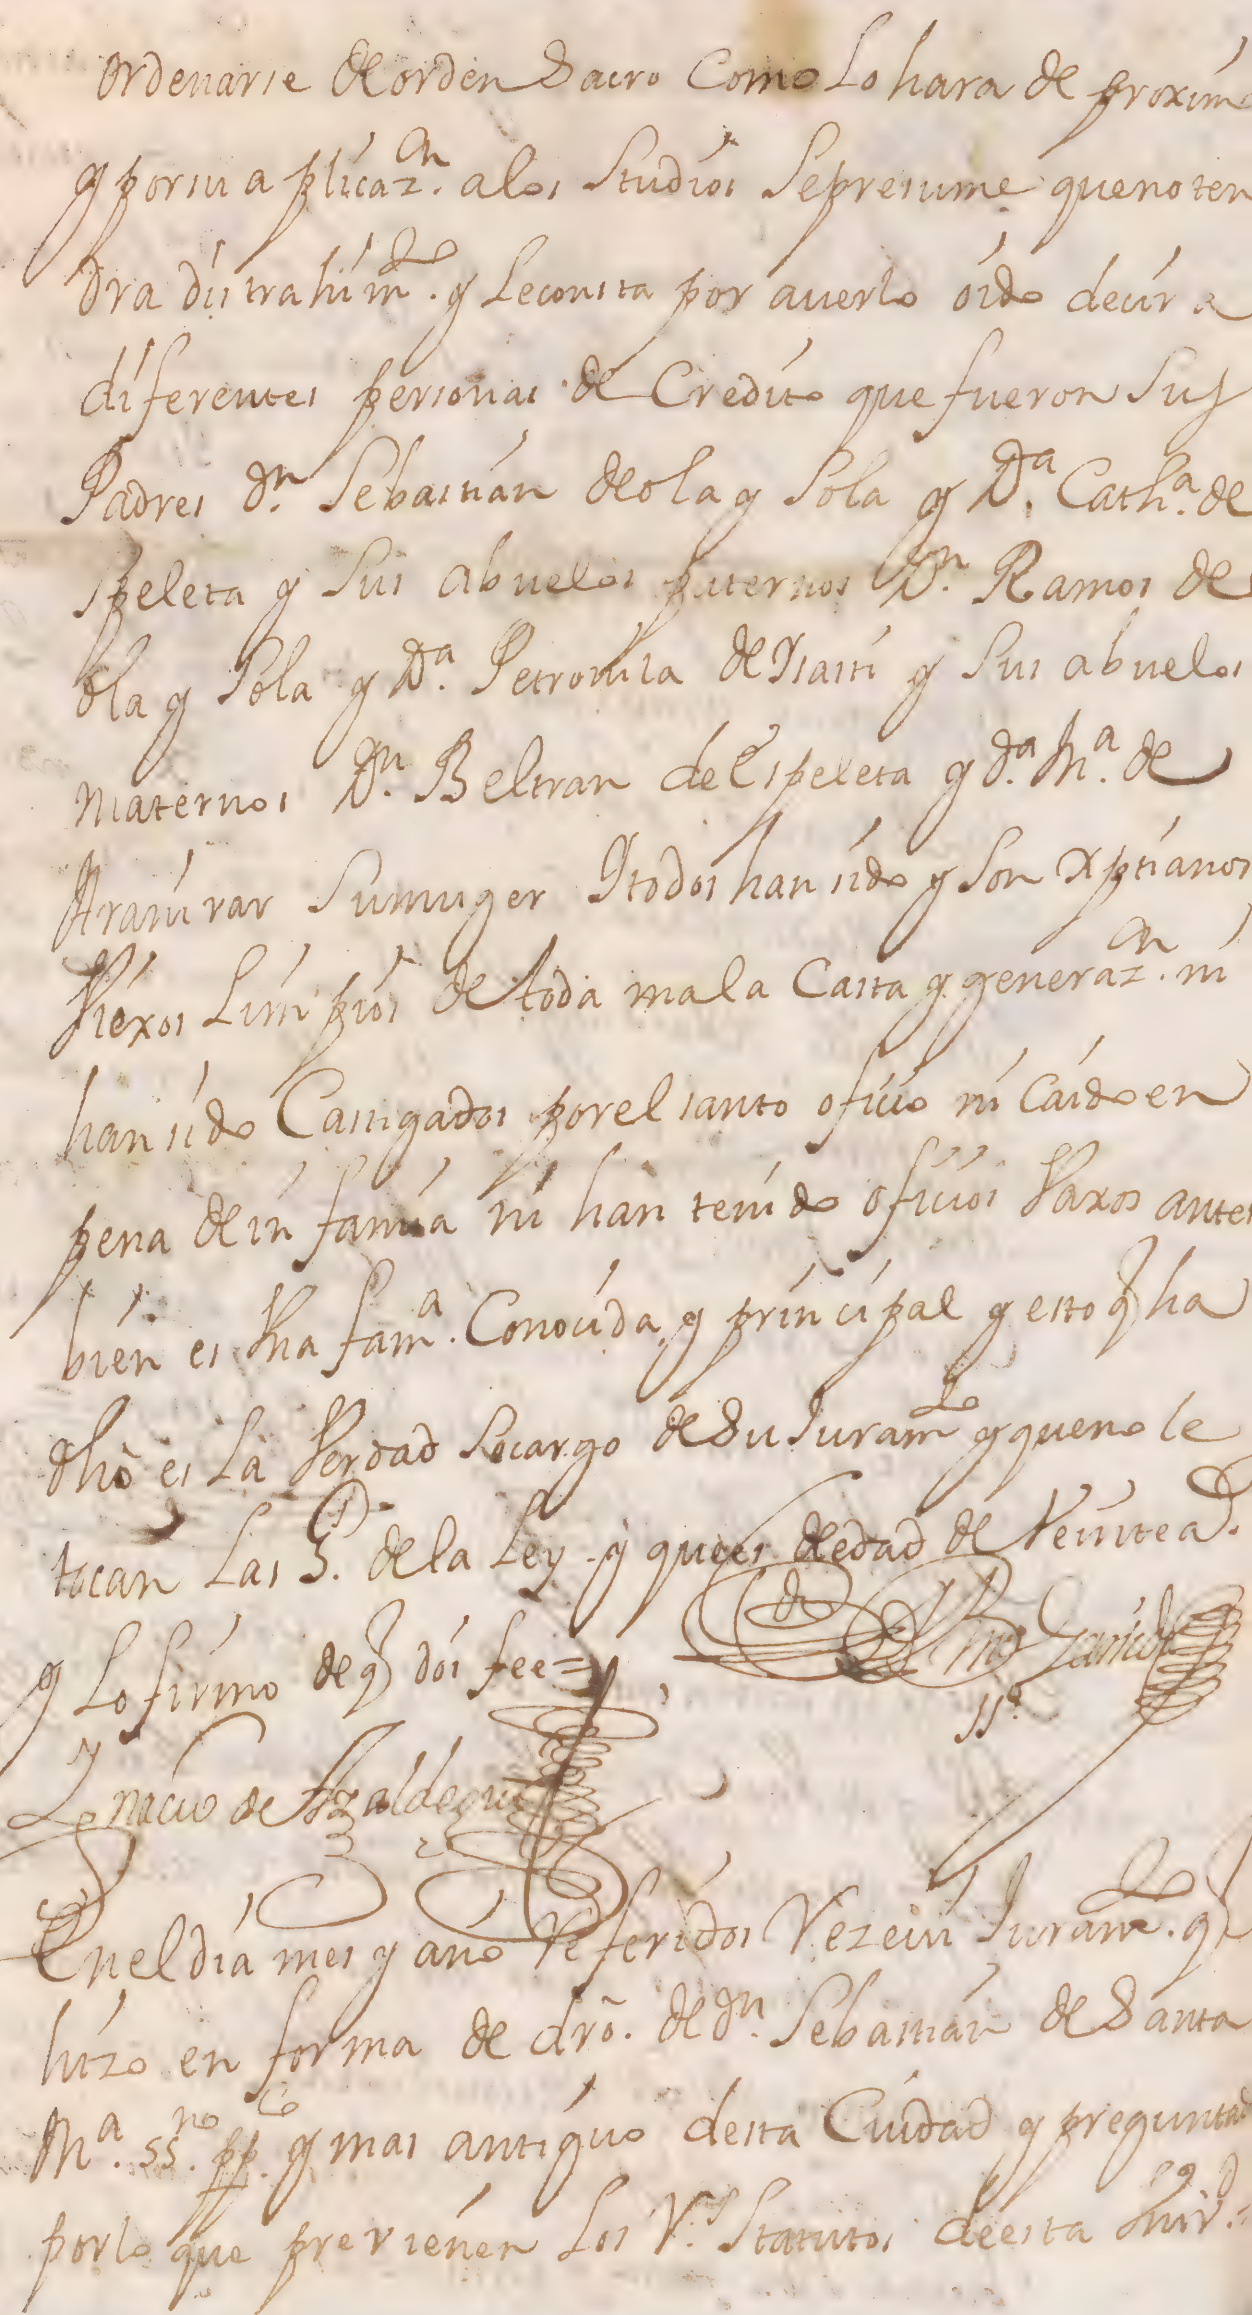 ordenarse de orden Sacro Como Lo hara de proxim
y por su aplicaz.on a los Studios Sepresume queno ten
dra distrahim.to y Leconsta por averlo oido decir a
diferentes personas de Credito que fueron Sus
Padres dn. Sebastian de ola y Sola y Da. Catha. de
speleta y Sus abuelos paternos Dn. Ramos de
ola y Sola y Da. Petronila de Ysasti y Sus abuelos
Maternos Dn. Beltran de Espeleta y da. Ma. de
Su muger Y todos han sido y Son Xptianos
Viexos Limpios de toda mala Casta y generaz.on ni
han sido Castigados por el santo oficio ni Caido en
pena de infamia ni han tenido oficios Vaxos antes
bien es Vna fama. Conocida y principal y esto q ha
dho es La Verdad Socargo de Su Juram.to y queno le
tocan Las G. de la Ley y quees de edad de Veinte a.
y Lo firmo de q doi fee=
Ygnacio de Azaldegui
En el dia mes y ano referidos Rezevi Juram.to q
hizo en forma de dro. de dn. Sebastian de Santa
Ma. ssno. ppco. y mas antiguo desta Ciudad y preguntad
por lo que previenen Los Rs. Statutos de esta Univd.